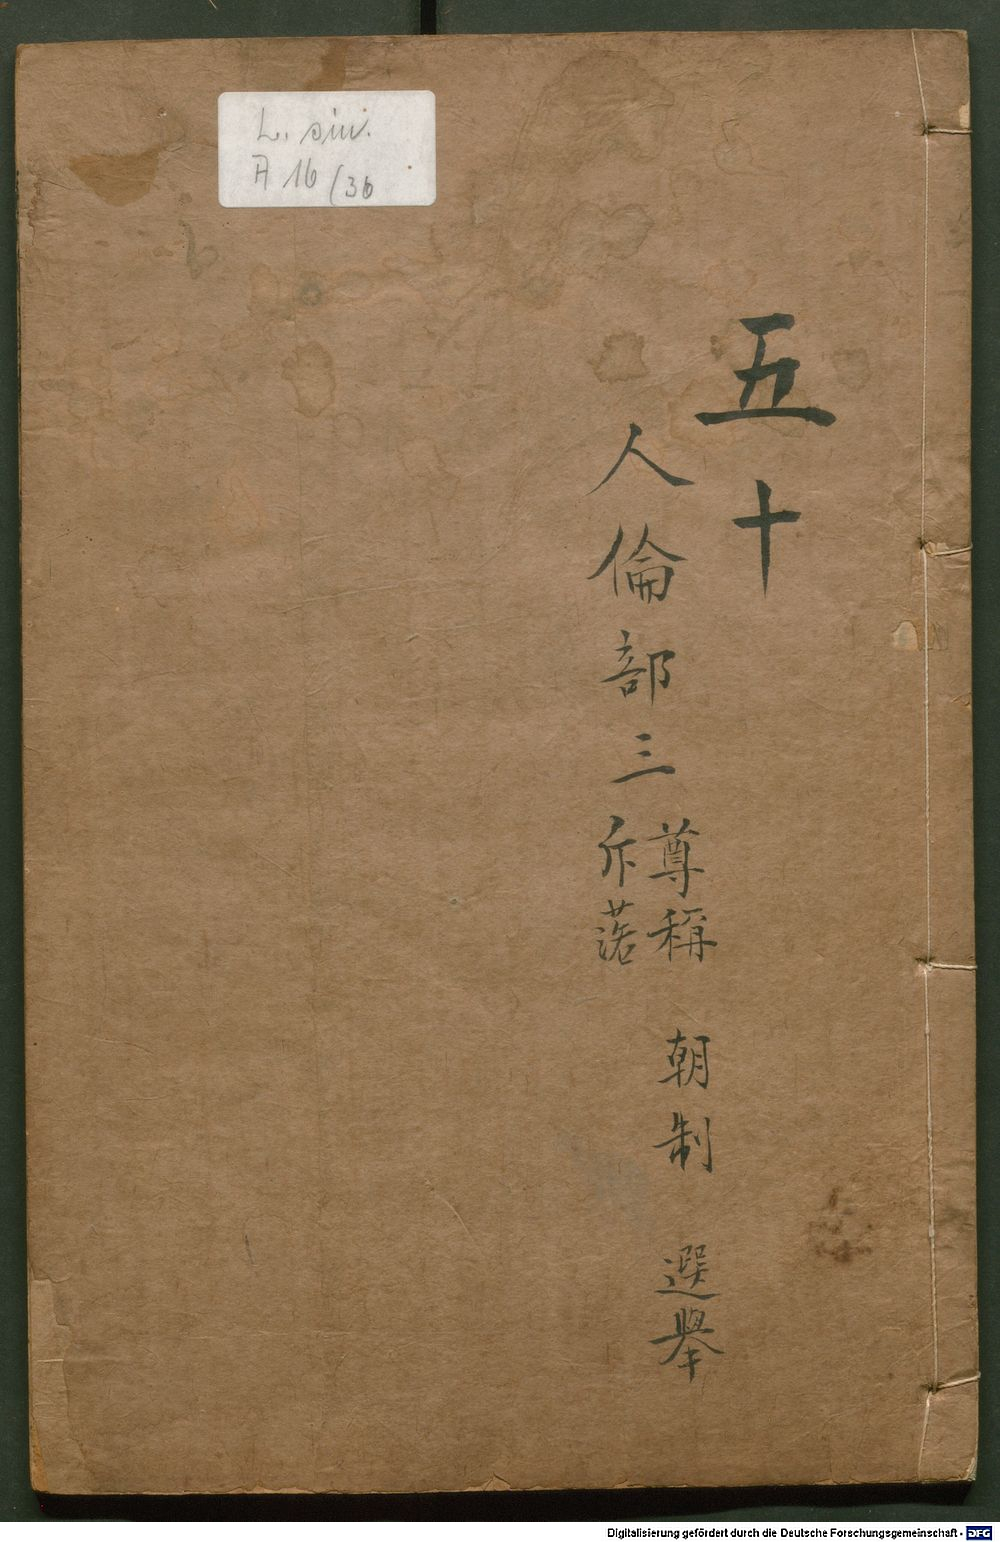 L. sin.
A 16 (36
五十
人倫部三
尊稱 朝制 選舉
斥落
Digitalisierung gefördert durch die Deutsche Forschungsgemeinschaft - DFG